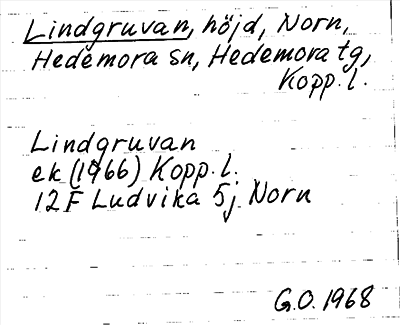 Lindgruvan, höjd, Norn,
Hedemora sn, Hedemora tg,
Kopp. l.
Lindgruvan
ek (1966) Kopp. l.
12F Ludvika 5j Norn
G.O. 1968